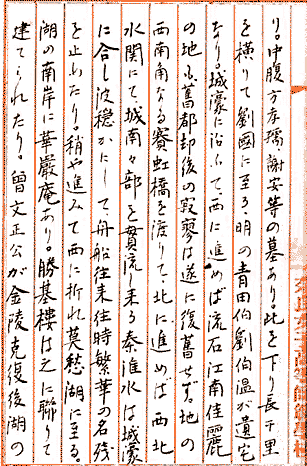 り。中腹方孝孺謝安等の墓あり。此を下り長千里
を横りて劉國に至る、明の青田伯劉伯温が遺宅
なり。城濠に沿ふて、西に進めば流石江南佳麗
の地も舊都却後の寂寥は遂に復舊せず。地の
西南角なる賽虹橋を渡りて、北に進めば西北
水関にて城南々部を貫流し来る秦淮水は城濠
に合し波穏かにして、舟船往来往時繁華の名残
を止めたり。稍や進みて西に折れ莫愁湖に至る。
湖の南岸に華嚴庵あり。勝基樓は之に聯りて
建てられたり。曾文正公が金陵克復後湖の